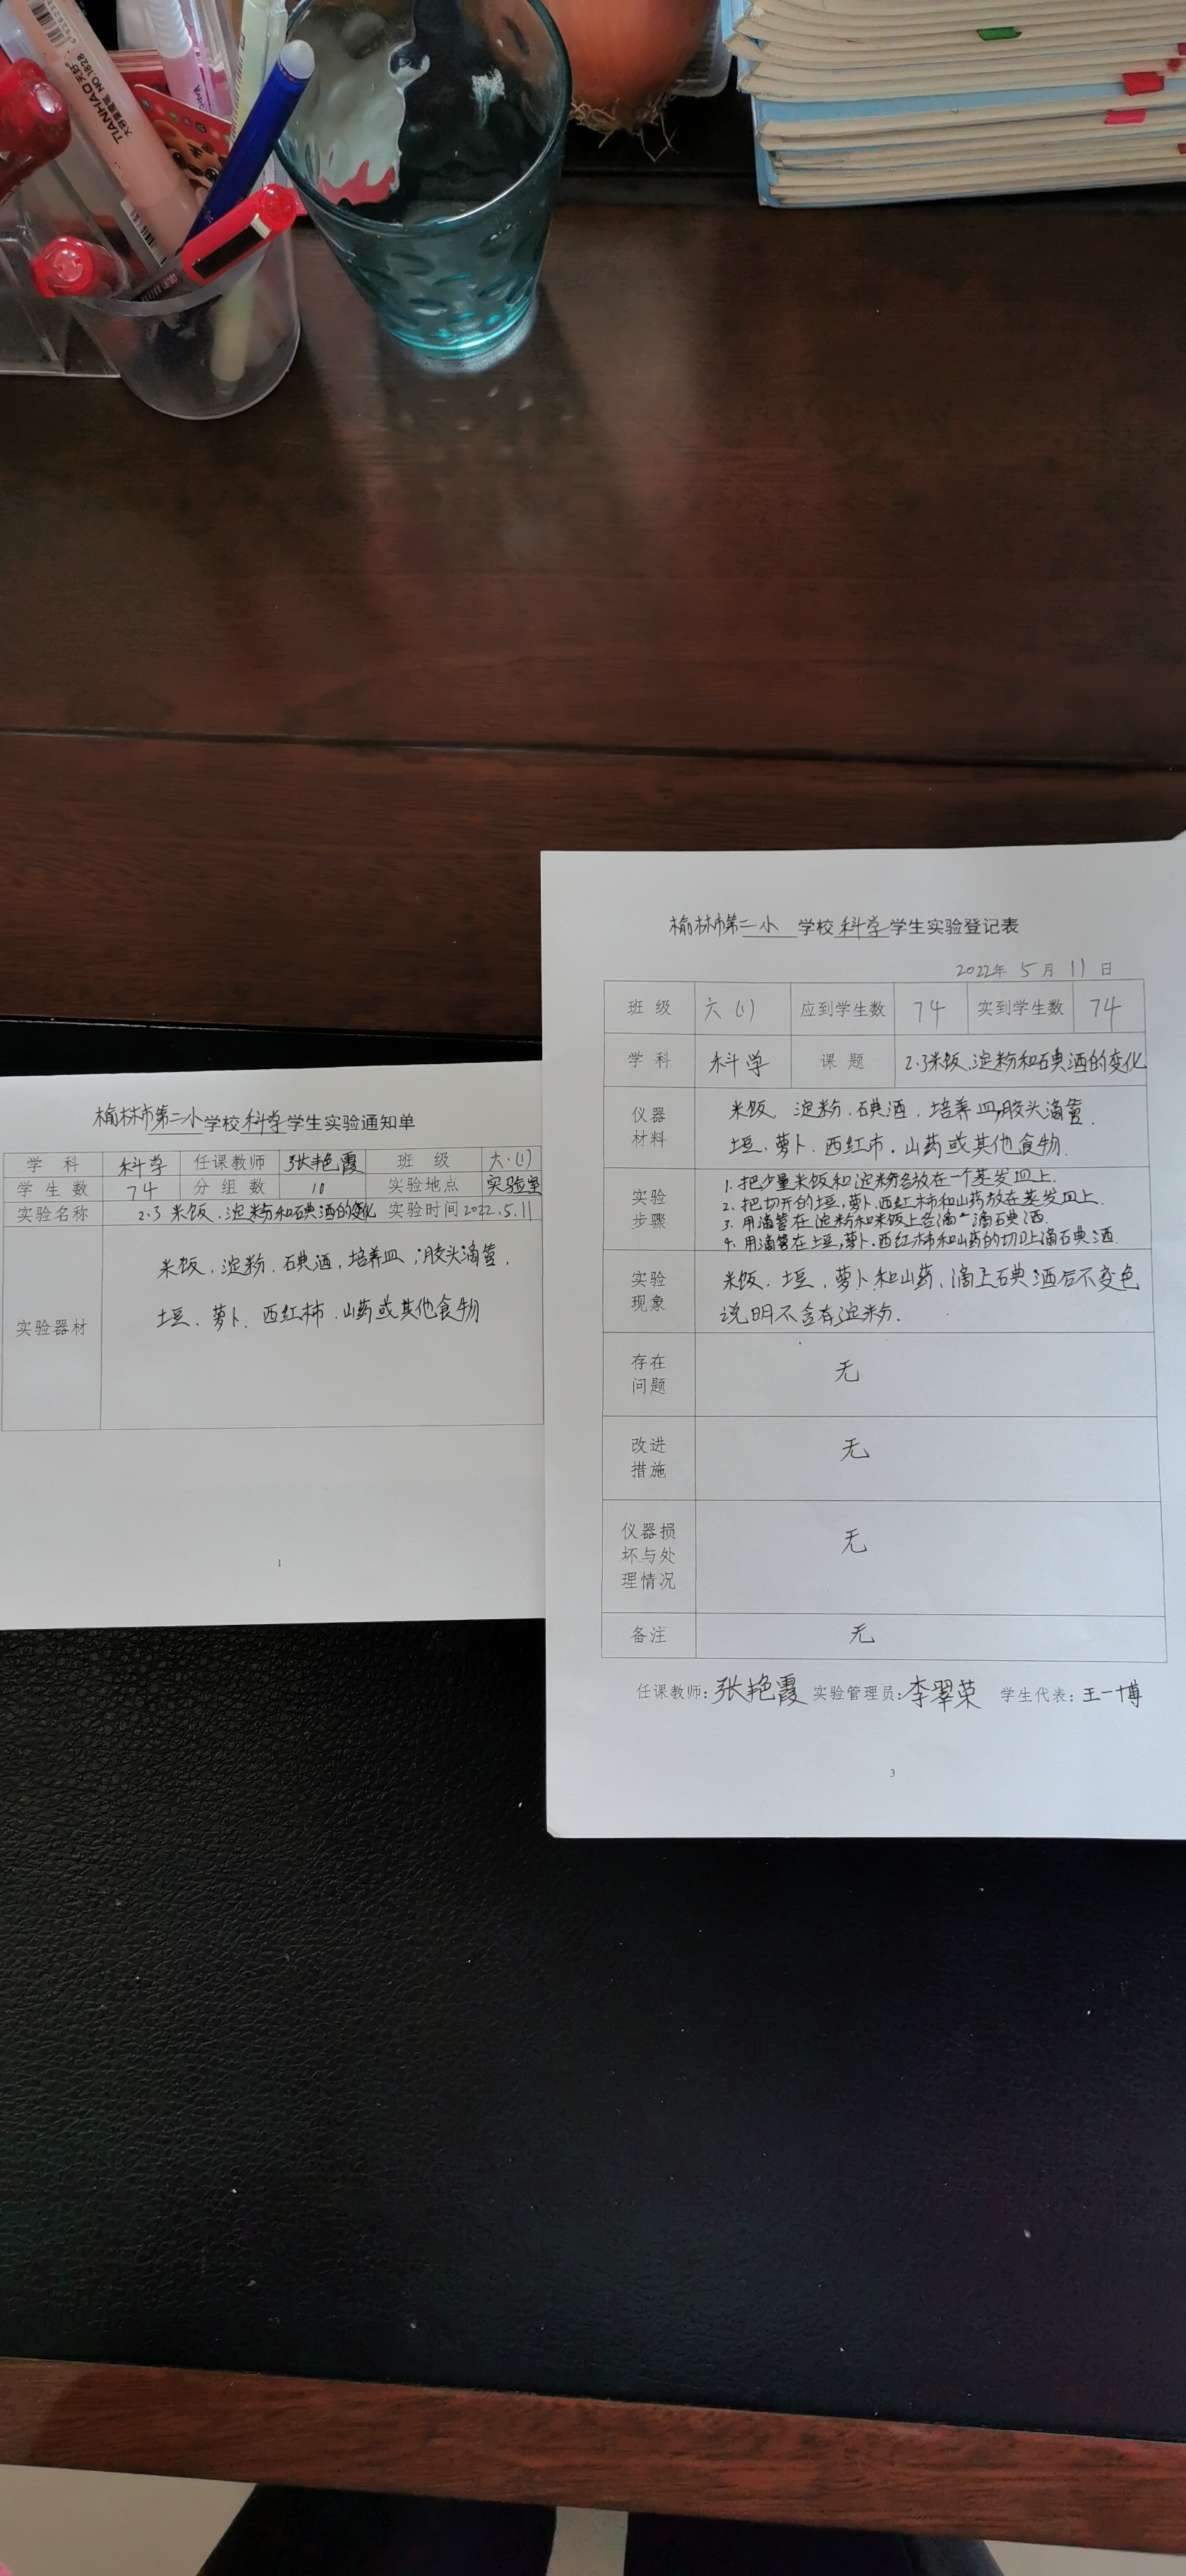 TIANHAO天好®
大容量荧光笔 NO.1828
榆林市第二小学校科学学生实验通知单
学 科 科学 任课教师 张艳霞 班 级 六.(1)
学 生 数 74 分 组 数 10 实验地点 实验室
实验名称 2.3 米饭.淀粉和碘酒的变化 实验时间 2022.5.11
实验器材
米饭.淀粉.碘酒,培养皿;胶头滴管.
土豆.萝卜.西红柿.山药或其他食物
1
榆林市第二小 学校科学学生实验登记表
2022年 5月 11日
班 级 六(1) 应到学生数 74 实到学生数 74
学 科 科学 课 题 2.3米饭.淀粉和碘酒的变化
仪器
材料
米饭.淀粉.碘酒.培养皿,胶头滴管.
土豆.萝卜.西红市.山药或其他食物.
实验
步骤
1.把少量米饭和淀粉各放在一个蒸发皿上.
2.把切开的土豆,萝卜.西红柿和山药放在蒸发皿上.
3.用滴管在淀粉和米饭上各滴一滴碘酒.
4.用滴管在土豆,萝卜.西红柿和山药的切口上滴碘酒.
实验
现象
米饭.土豆.萝卜和山药,滴上碘酒后不变色
说明不含有淀粉.
存在
问题
无
改进
措施
无
仪器损
坏与处
理情况
无
备注 无
任课教师:张艳霞 实验管理员:李翠荣 学生代表:王一博
3